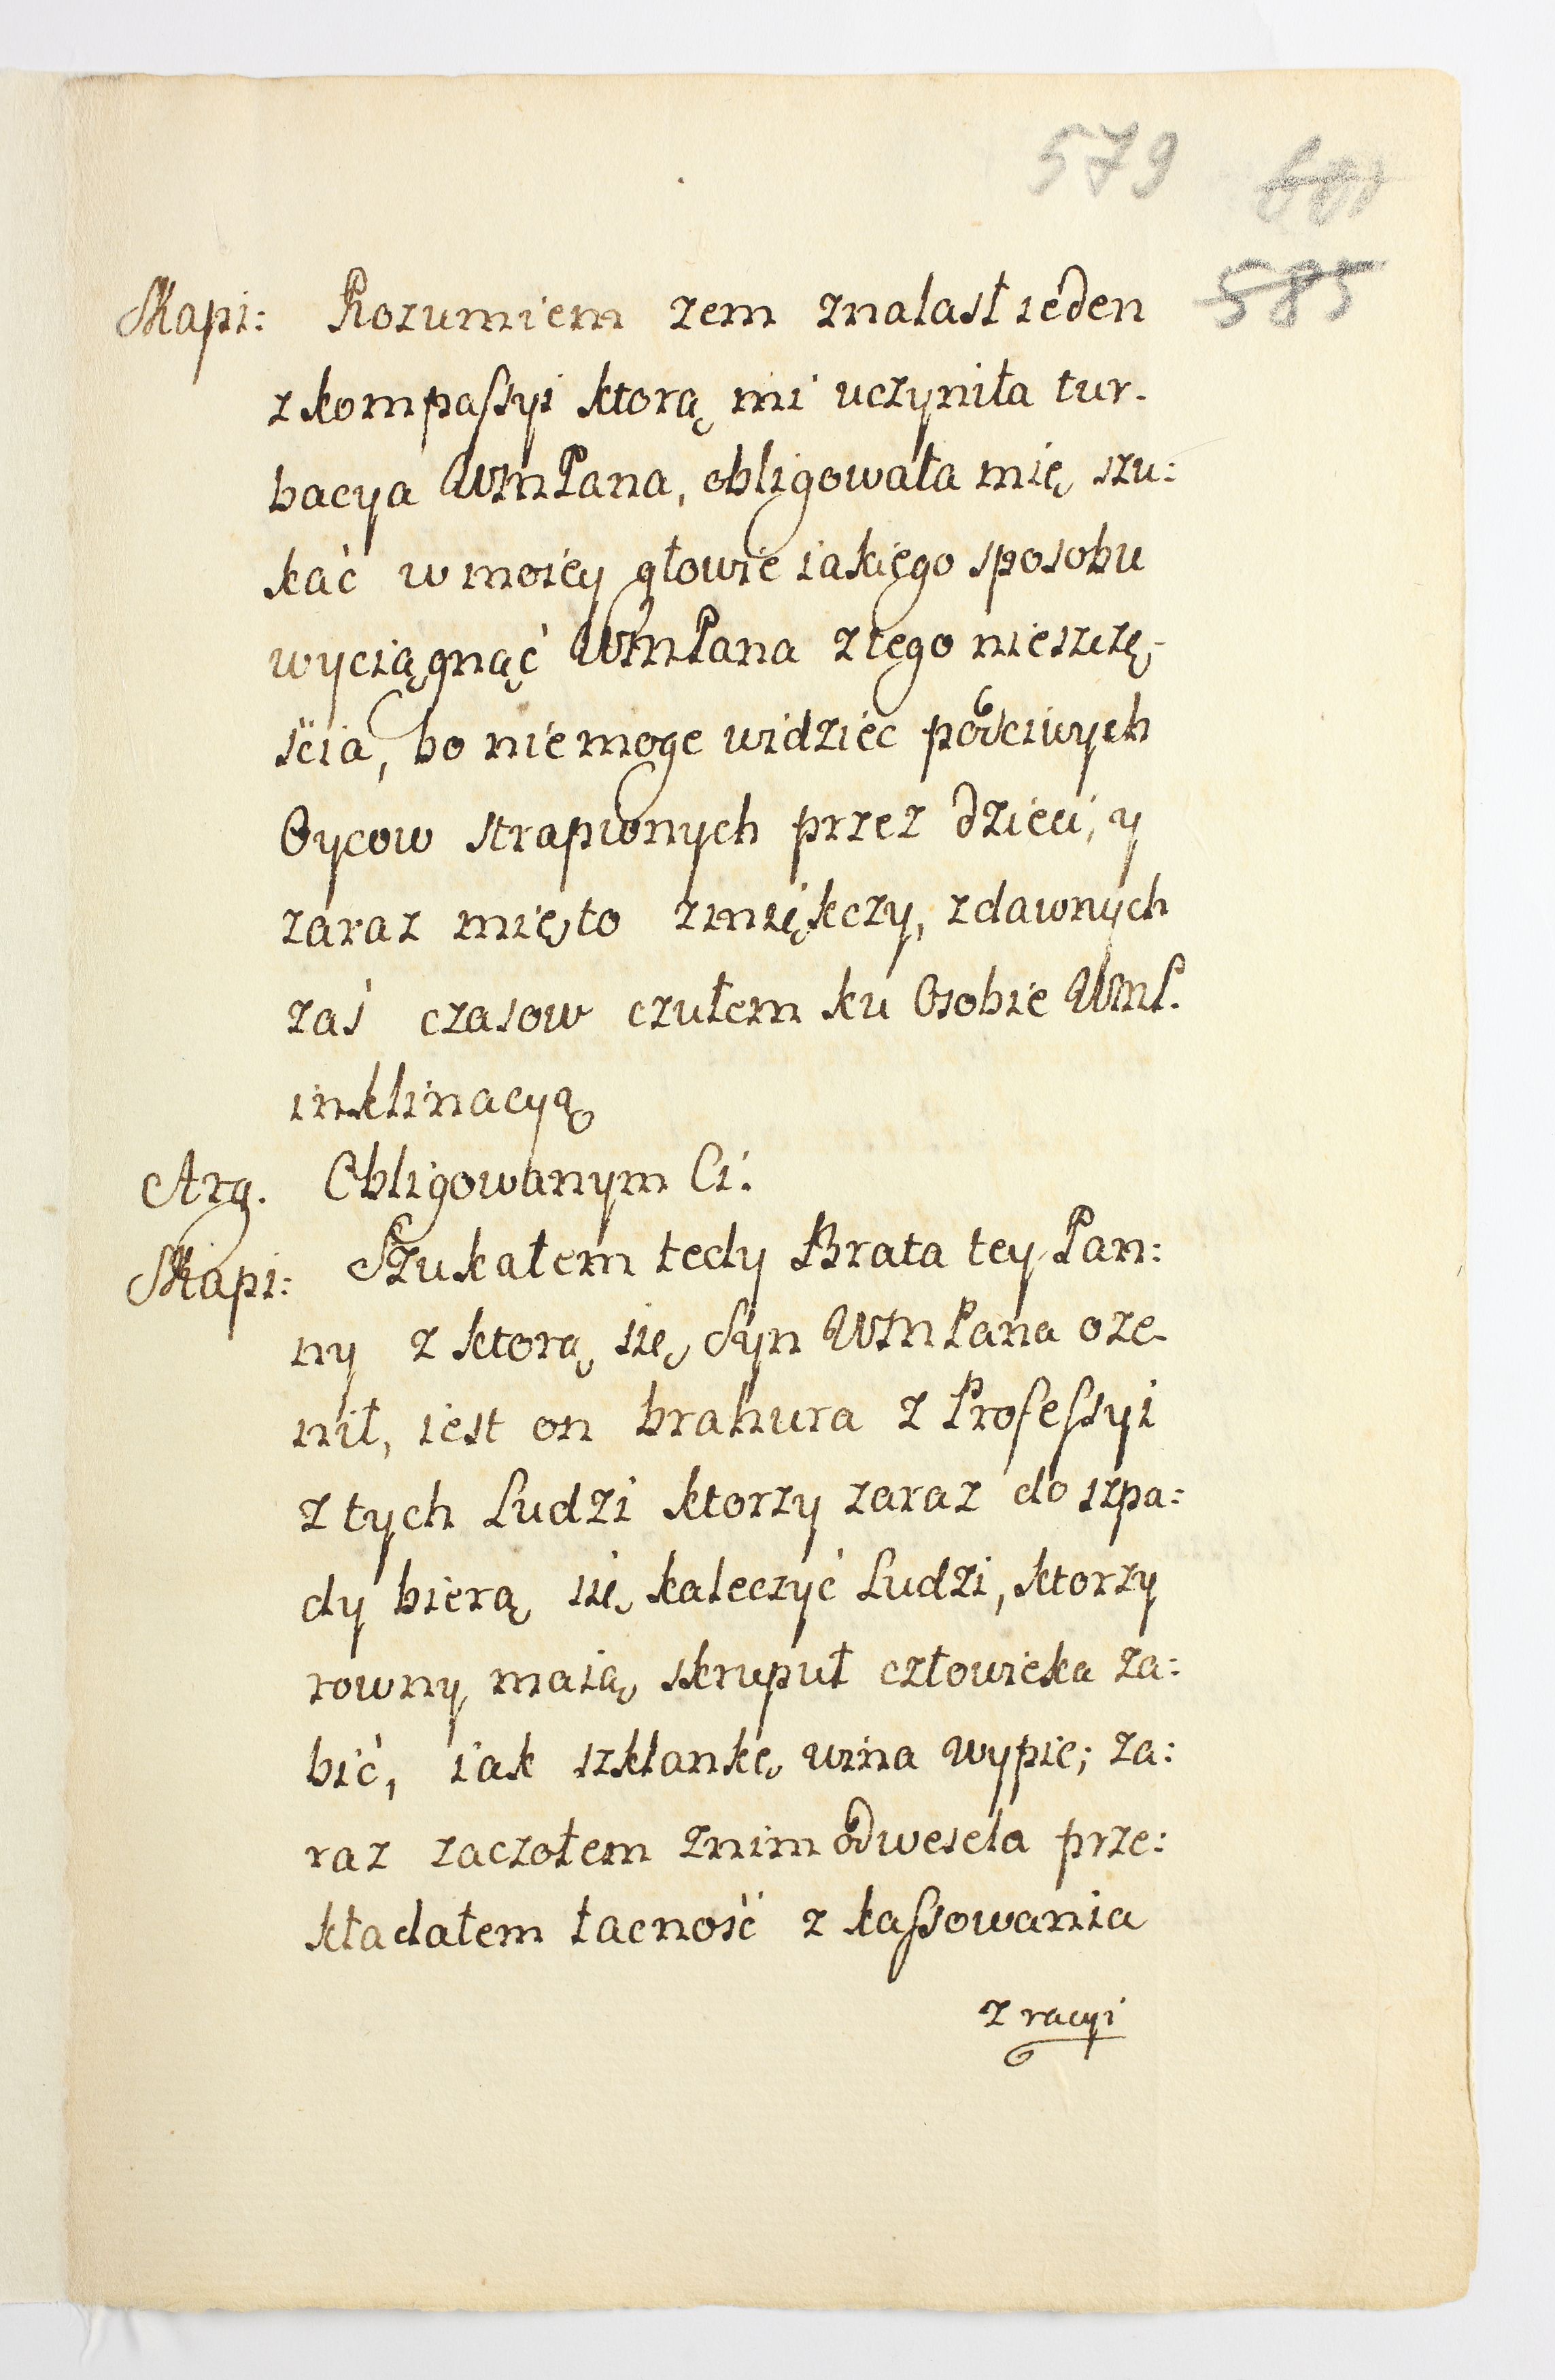 579
585
Skapi: Rozumiem zem znalasł ieden
z kompassyi ktorą mi uczyniła tur-
bacya WMPana, obligowała mię szu:
kać w moiey głowie iakiego sposobu
wyciągnąć WMPana z tego nieszczę-
ścia, bo nie moge widziec poczciwych
Oycow strapionych przez dzieci, y
zaraz mię to zmiękczy, z dawnych
zaś czasow czułem ku Osobie WMP.
inklinacyą
Arg. Obligowanym Ci.
Skapi: Szukałem tedy Brata tey Pan:
ny z ktorą się Syn WMPana oże-
nił, iest on brahura z Professyi
z tych Ludzi ktorzy zaraz do szpa:
dy bierą się kaleczyć Ludzi, ktorzy
rowny maią skrupuł człowieka za:
bić, iak szklankę wina wypić; za:
raz zaczołem z nim od wesela prze:
kładałem łacność z kassowania
z racyi